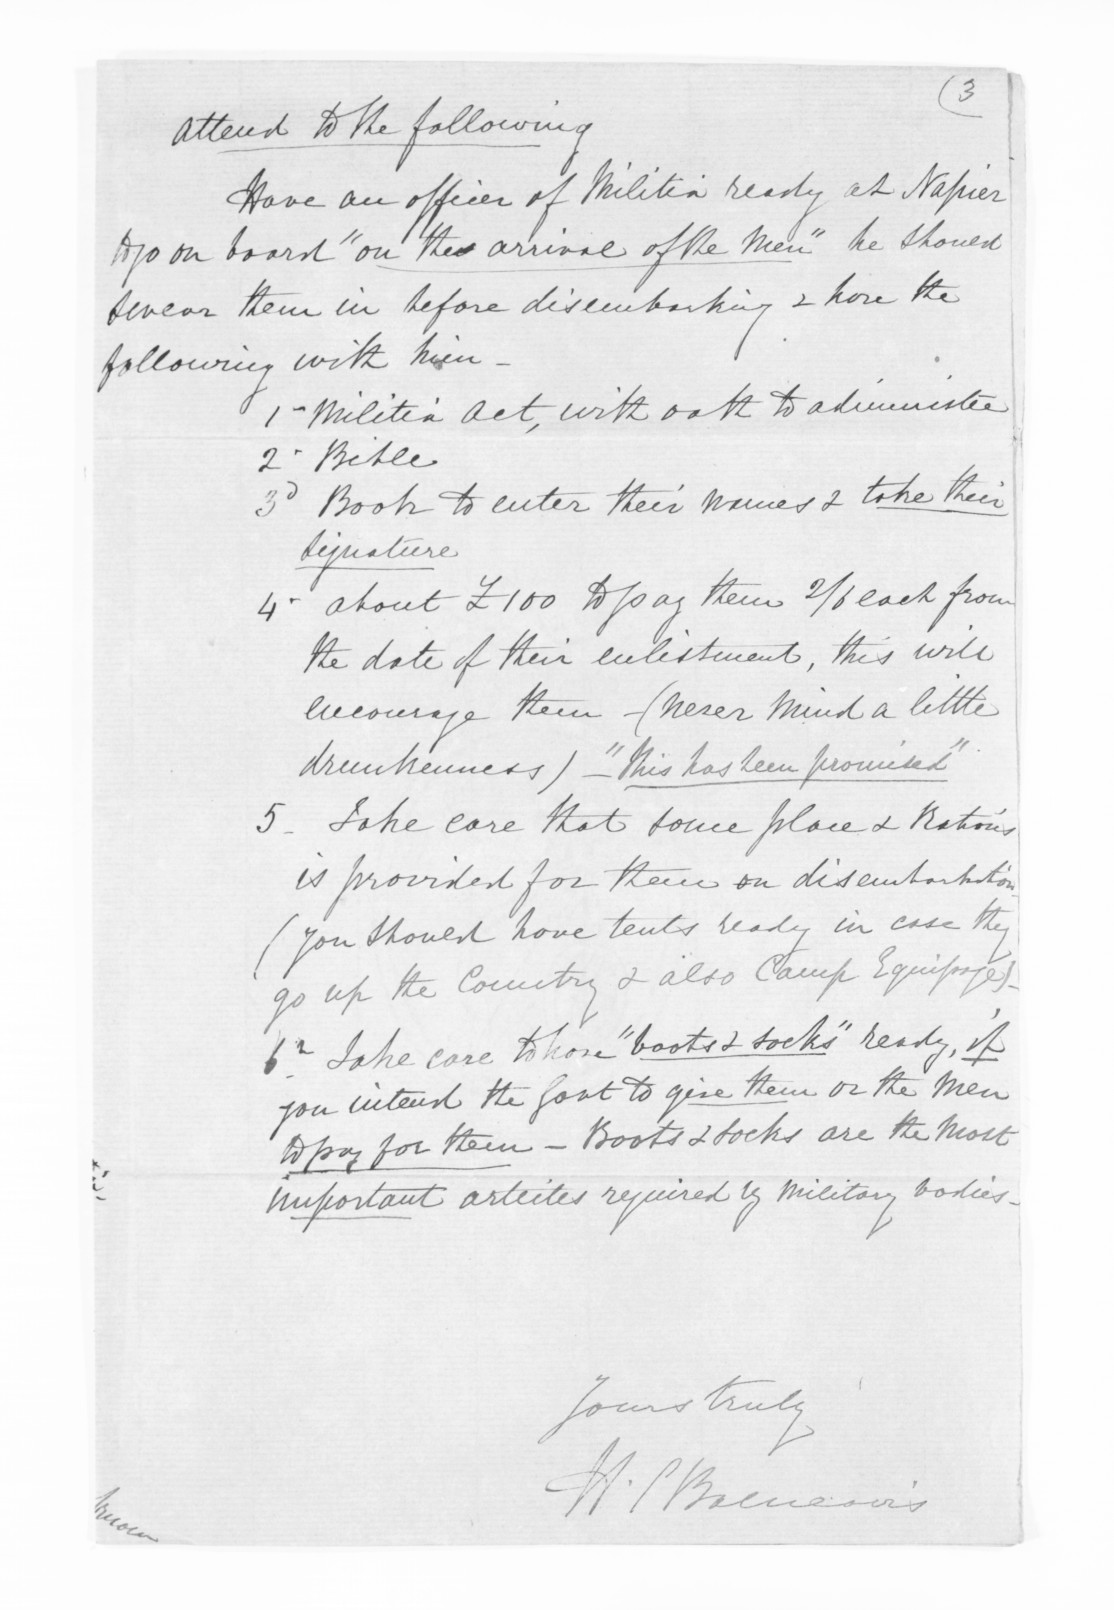 (3
attend to the following
Have an officer of Militia ready at Napier
to go on board "on the arrival of the Men" he should
swear them in before disembarking & have the
following with him -
1 - Militia Act, with oath to administer
2 - Bible
3d Book to enter their names & take their
signature
4 - about £100 to pay them 2/6 each from
the date of their enlistment, this will
encourage them - (never mind a little
drunkenness) - "this has been promised"
5 - Take care that some place & Rations
is provided for them on disembarkation
(you should have tents ready in case they
go up the Country & also Camp Equipage) -
6 - Take care to have "boots & socks" ready, if
you intend the Govt to give them or the Men
to pay for them - Boots & socks are the most
important articles required by Military bodies -
Yours truly
H. C Balneavis